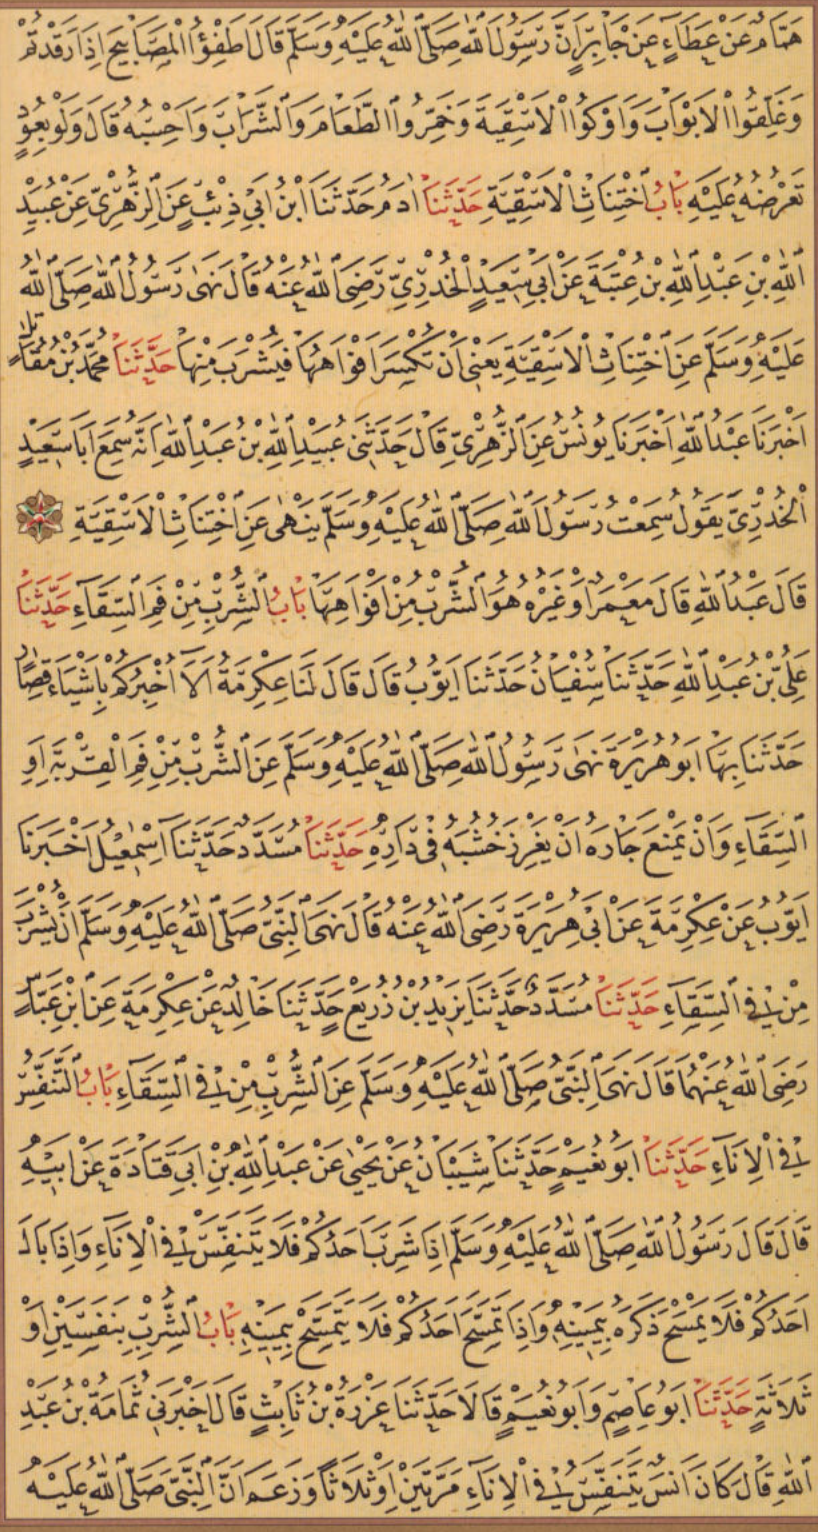 هَمَّامٌ عَنْ عَطَاءٍ عَنْ جَابِرٍ اَنَّ رَسُولَ اللّٰهِ صَلَّى اللّٰهُ عَلَيْهِ وَسَلَّمَ قَالَ اَطْفِؤُا الْمَصَابِيحَ اِذَا رَقَدْتُمْ
وَغَلِّقُوا الْاَبْوَابَ وَاَوْكُوا الْاَسْقِيَةَ وَخَمِّرُوا الطَّعَامَ وَالشَّرَابَ وَاَحْسِبُهُ قَالَ وَلَوْ بِعُودٍ
تَعْرُضُهُ عَلَيْهِ بَابُ اخْتِنَاثِ الْاَسْقِيَةِ حَدَّثَنَا اٰدَمُ حَدَّثَنَا ابْنُ اَبِي ذِئْبٍ عَنِ الزُّهْرِيِّ عَنْ عُبَيْدِ
اللّٰهِ بْنِ عَبْدِ اللّٰهِ بْنِ عُتْبَةَ عَنْ اَبِي سَعِيدٍ الْخُدْرِيِّ رَضِيَ اللّٰهُ عَنْهُ قَالَ نَهَى رَسُولُ اللّٰهِ صَلَّى اللّٰهُ
عَلَيْهِ وَسَلَّمَ عَنِ اخْتِنَاثِ الْاَسْقِيَةِ يَعْنِي اَنْ تُكْسَرَ اَفْوَاهُهَا فَيُشْرَبَ مِنْهَا حَدَّثَنَا مُحَمَّدُ بْنُ مُقَاتِلٍ
اَخْبَرَنَا عَبْدُ اللّٰهِ اَخْبَرَنَا يُونُسُ عَنِ الزُّهْرِيِّ قَالَ حَدَّثَنِي عُبَيْدُ اللّٰهِ بْنُ عَبْدِ اللّٰهِ اَنَّهُ سَمِعَ اَبَا سَعِيدٍ
الْخُدْرِيَّ يَقُولُ سَمِعْتُ رَسُولَ اللّٰهِ صَلَّى اللّٰهُ عَلَيْهِ وَسَلَّمَ يَنْهٰى عَنِ اخْتِنَاثِ الْاَسْقِيَةِ
قَالَ عَبْدُ اللّٰهِ قَالَ مَعْمَرٌ اَوْ غَيْرُهُ هُوَ الشُّرْبُ مِنْ اَفْوَاهِهَا بَابُ الشُّرْبِ مِنْ فَمِ السِّقَاءِ حَدَّثَنَا
عَلِيُّ بْنُ عَبْدِ اللّٰهِ حَدَّثَنَا سُفْيَانُ حَدَّثَنَا اَيُّوبُ قَالَ قَالَ لَنَا عِكْرِمَةُ اَلَا اُخْبِرُكُمْ بِاَشْيَاءَ قِصَارٍ
حَدَّثَنَا بِهَا اَبُو هُرَيْرَةَ نَهَى رَسُولُ اللّٰهِ صَلَّى اللّٰهُ عَلَيْهِ وَسَلَّمَ عَنِ الشُّرْبِ مِنْ فَمِ الْقِرْبَةِ اَوِ
السِّقَاءِ وَاَنْ يَمْنَعَ جَارَهُ اَنْ يَغْرِزَ خَشَبَهُ فِي دَارِهِ حَدَّثَنَا مُسَدَّدٌ حَدَّثَنَا اِسْمٰعِيلُ اَخْبَرَنَا
اَيُّوبُ عَنْ عِكْرِمَةَ عَنْ اَبِي هُرَيْرَةَ رَضِيَ اللّٰهُ عَنْهُ قَالَ نَهَى النَّبِيُّ صَلَّى اللّٰهُ عَلَيْهِ وَسَلَّمَ اَنْ يُشْرَبَ
مِنْ فِي السِّقَاءِ حَدَّثَنَا مُسَدَّدٌ حَدَّثَنَا يَزِيدُ بْنُ زُرَيْعٍ حَدَّثَنَا خَالِدٌ عَنْ عِكْرِمَةَ عَنِ ابْنِ عَبَّاسٍ
رَضِيَ اللّٰهُ عَنْهُمَا قَالَ نَهَى النَّبِيُّ صَلَّى اللّٰهُ عَلَيْهِ وَسَلَّمَ عَنِ الشُّرْبِ مِنْ فِي السِّقَاءِ بَابُ التَّنَفُّسِ
فِي الْاِنَاءِ حَدَّثَنَا اَبُو نُعَيْمٍ حَدَّثَنَا شَيْبَانُ عَنْ يَحْيٰى عَنْ عَبْدِ اللّٰهِ بْنِ اَبِي قَتَادَةَ عَنْ اَبِيهِ
قَالَ قَالَ رَسُولُ اللّٰهِ صَلَّى اللّٰهُ عَلَيْهِ وَسَلَّمَ اِذَا شَرِبَ اَحَدُكُمْ فَلَا يَتَنَفَّسْ فِي الْاِنَاءِ وَاِذَا بَالَ
اَحَدُكُمْ فَلَا يَمْسَحْ ذَكَرَهُ بِيَمِينِهِ وَاِذَا تَمَسَّحَ اَحَدُكُمْ فَلَا يَتَمَسَّحْ بِيَمِينِهِ بَابُ الشُّرْبِ بِنَفَسَيْنِ اَوْ
ثَلَاثَةٍ حَدَّثَنَا اَبُو عَاصِمٍ وَاَبُو نُعَيْمٍ قَالَا حَدَّثَنَا عَزْرَةُ بْنُ ثَابِتٍ قَالَ اَخْبَرَنِي ثُمَامَةُ بْنُ عَبْدِ
اللّٰهِ قَالَ كَانَ اَنَسٌ يَتَنَفَّسُ فِي الْاِنَاءِ مَرَّتَيْنِ اَوْ ثَلَاثًا وَزَعَمَ اَنَّ النَّبِيَّ صَلَّى اللّٰهُ عَلَيْهِ